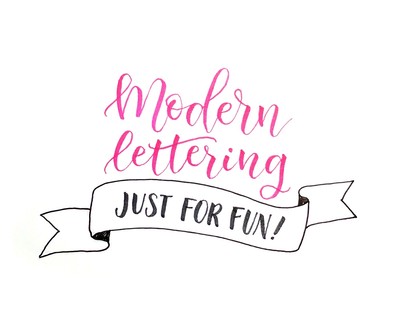 Modern
lettering
JUST FOR FUN!